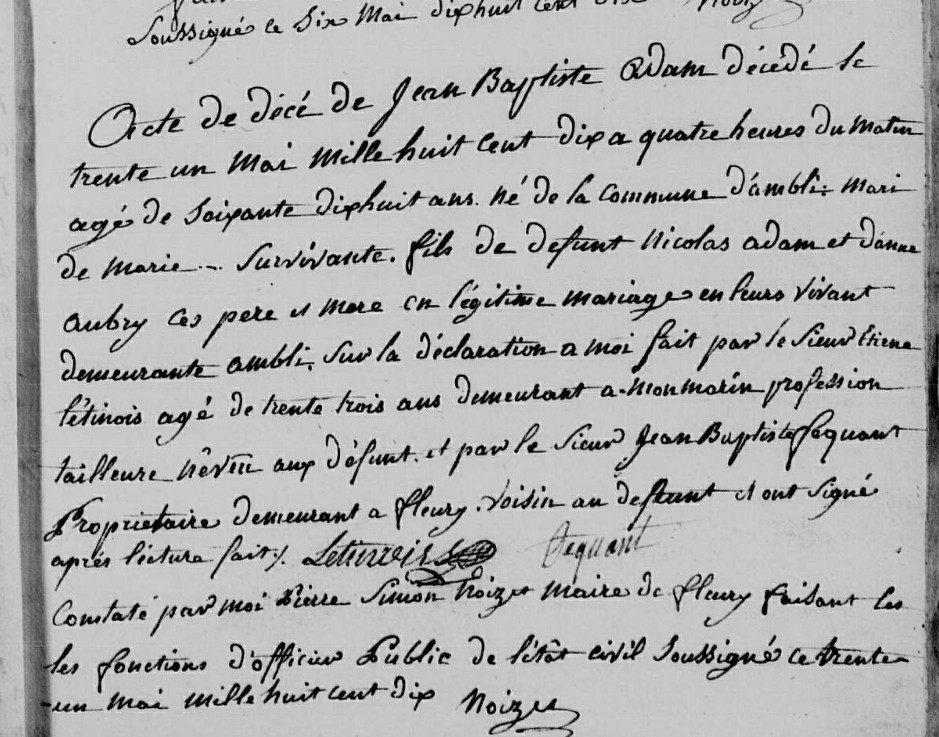 Soussigné ce Six Mai dixhuit cent dix Noizet
Acte de décé de Jean Baptiste adam décédé le
trente un Mai Mille huit Cent dix a quatre heures du Matin
agé de Soixante dixhuit ans. né de la Commune d'ambli. Mari
de Marie -. Survivante. fils de defunt Nicolas adam et d'anne
aubry ces pere et mere en légitime mariage en leurs vivant
demeurante ambli. Sur la déclaration a moi fait par le Sieur Etiene
létinois agé de trente trois ans demeurant a Monmarin profession
tailleure névëu aux défunt. et par le Sieur Jean Baptiste fequant
Propriétaire demeurant a fleury. Voisin au defunt et ont Signé
aprés lectura fait /.
Constaté par moi Pierre Simon Noizet Maire de fleury faisant les
les fonctions d'officier Public de l'état civil Soussigné ce trente
-un Mai Mille huit Cent dix Noizet